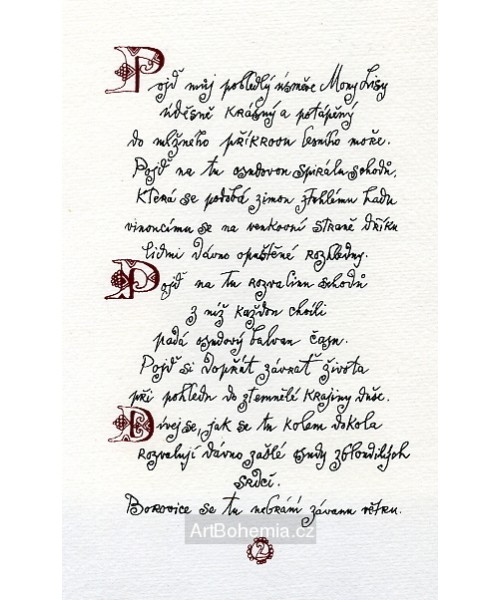 Pojď můj pobledlý úsměve Mony Lisy
úděsně krásný a potápěný
do mlžného příkrovu lesního moře.
Pojď na tu osudovou spirálu schodů,
Která se podobá zimou ztuhlému hadu
vinoucímu se na venkovní straně dříku
lidmi dávno opuštěné rozhledny.
Pojď na tu rozvalinu schodů
z níž každou chvíli
padá osudový balvan času.
Pojď si dopřát závrať života
při pohledu do ztemnělé krajiny duše.
Dívej se, jak se tu kolem dokola
rozvalují dávno zašlé osudy zbloudilých
srdcí.
Borovice se tu nebrání závanu větru.
ArtBohemia.cz
2